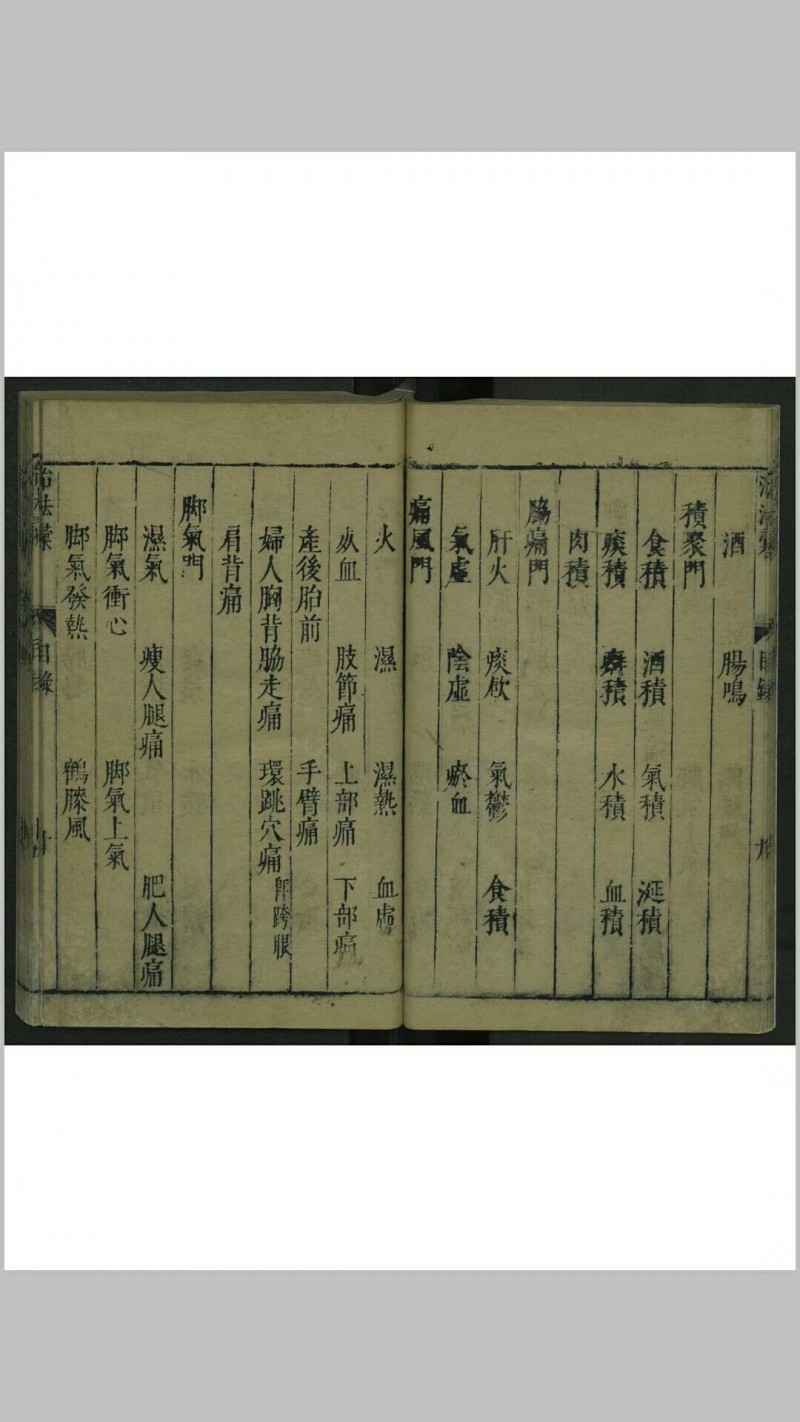 目錄
酒 腸鳴
積聚門
食積 酒積 氣積 涎積
痰積 癖積 水積 血積
肉積
脇痛門
肝火 痰飲 氣鬱 食積
氣虛 陰虛 瘀血
痛風門
火 濕 濕熱 血虛
血 肢節痛 上部痛 下部痛
產後胎前 手臂痛
婦人胸背脇走痛 環跳穴痛 即跨眼
肩背痛
脚氣門
濕氣 瘦人腿痛 肥人腿痛
脚氣衝心 脚氣上氣
脚氣發熱 鶴膝風
治法彙 目錄 十